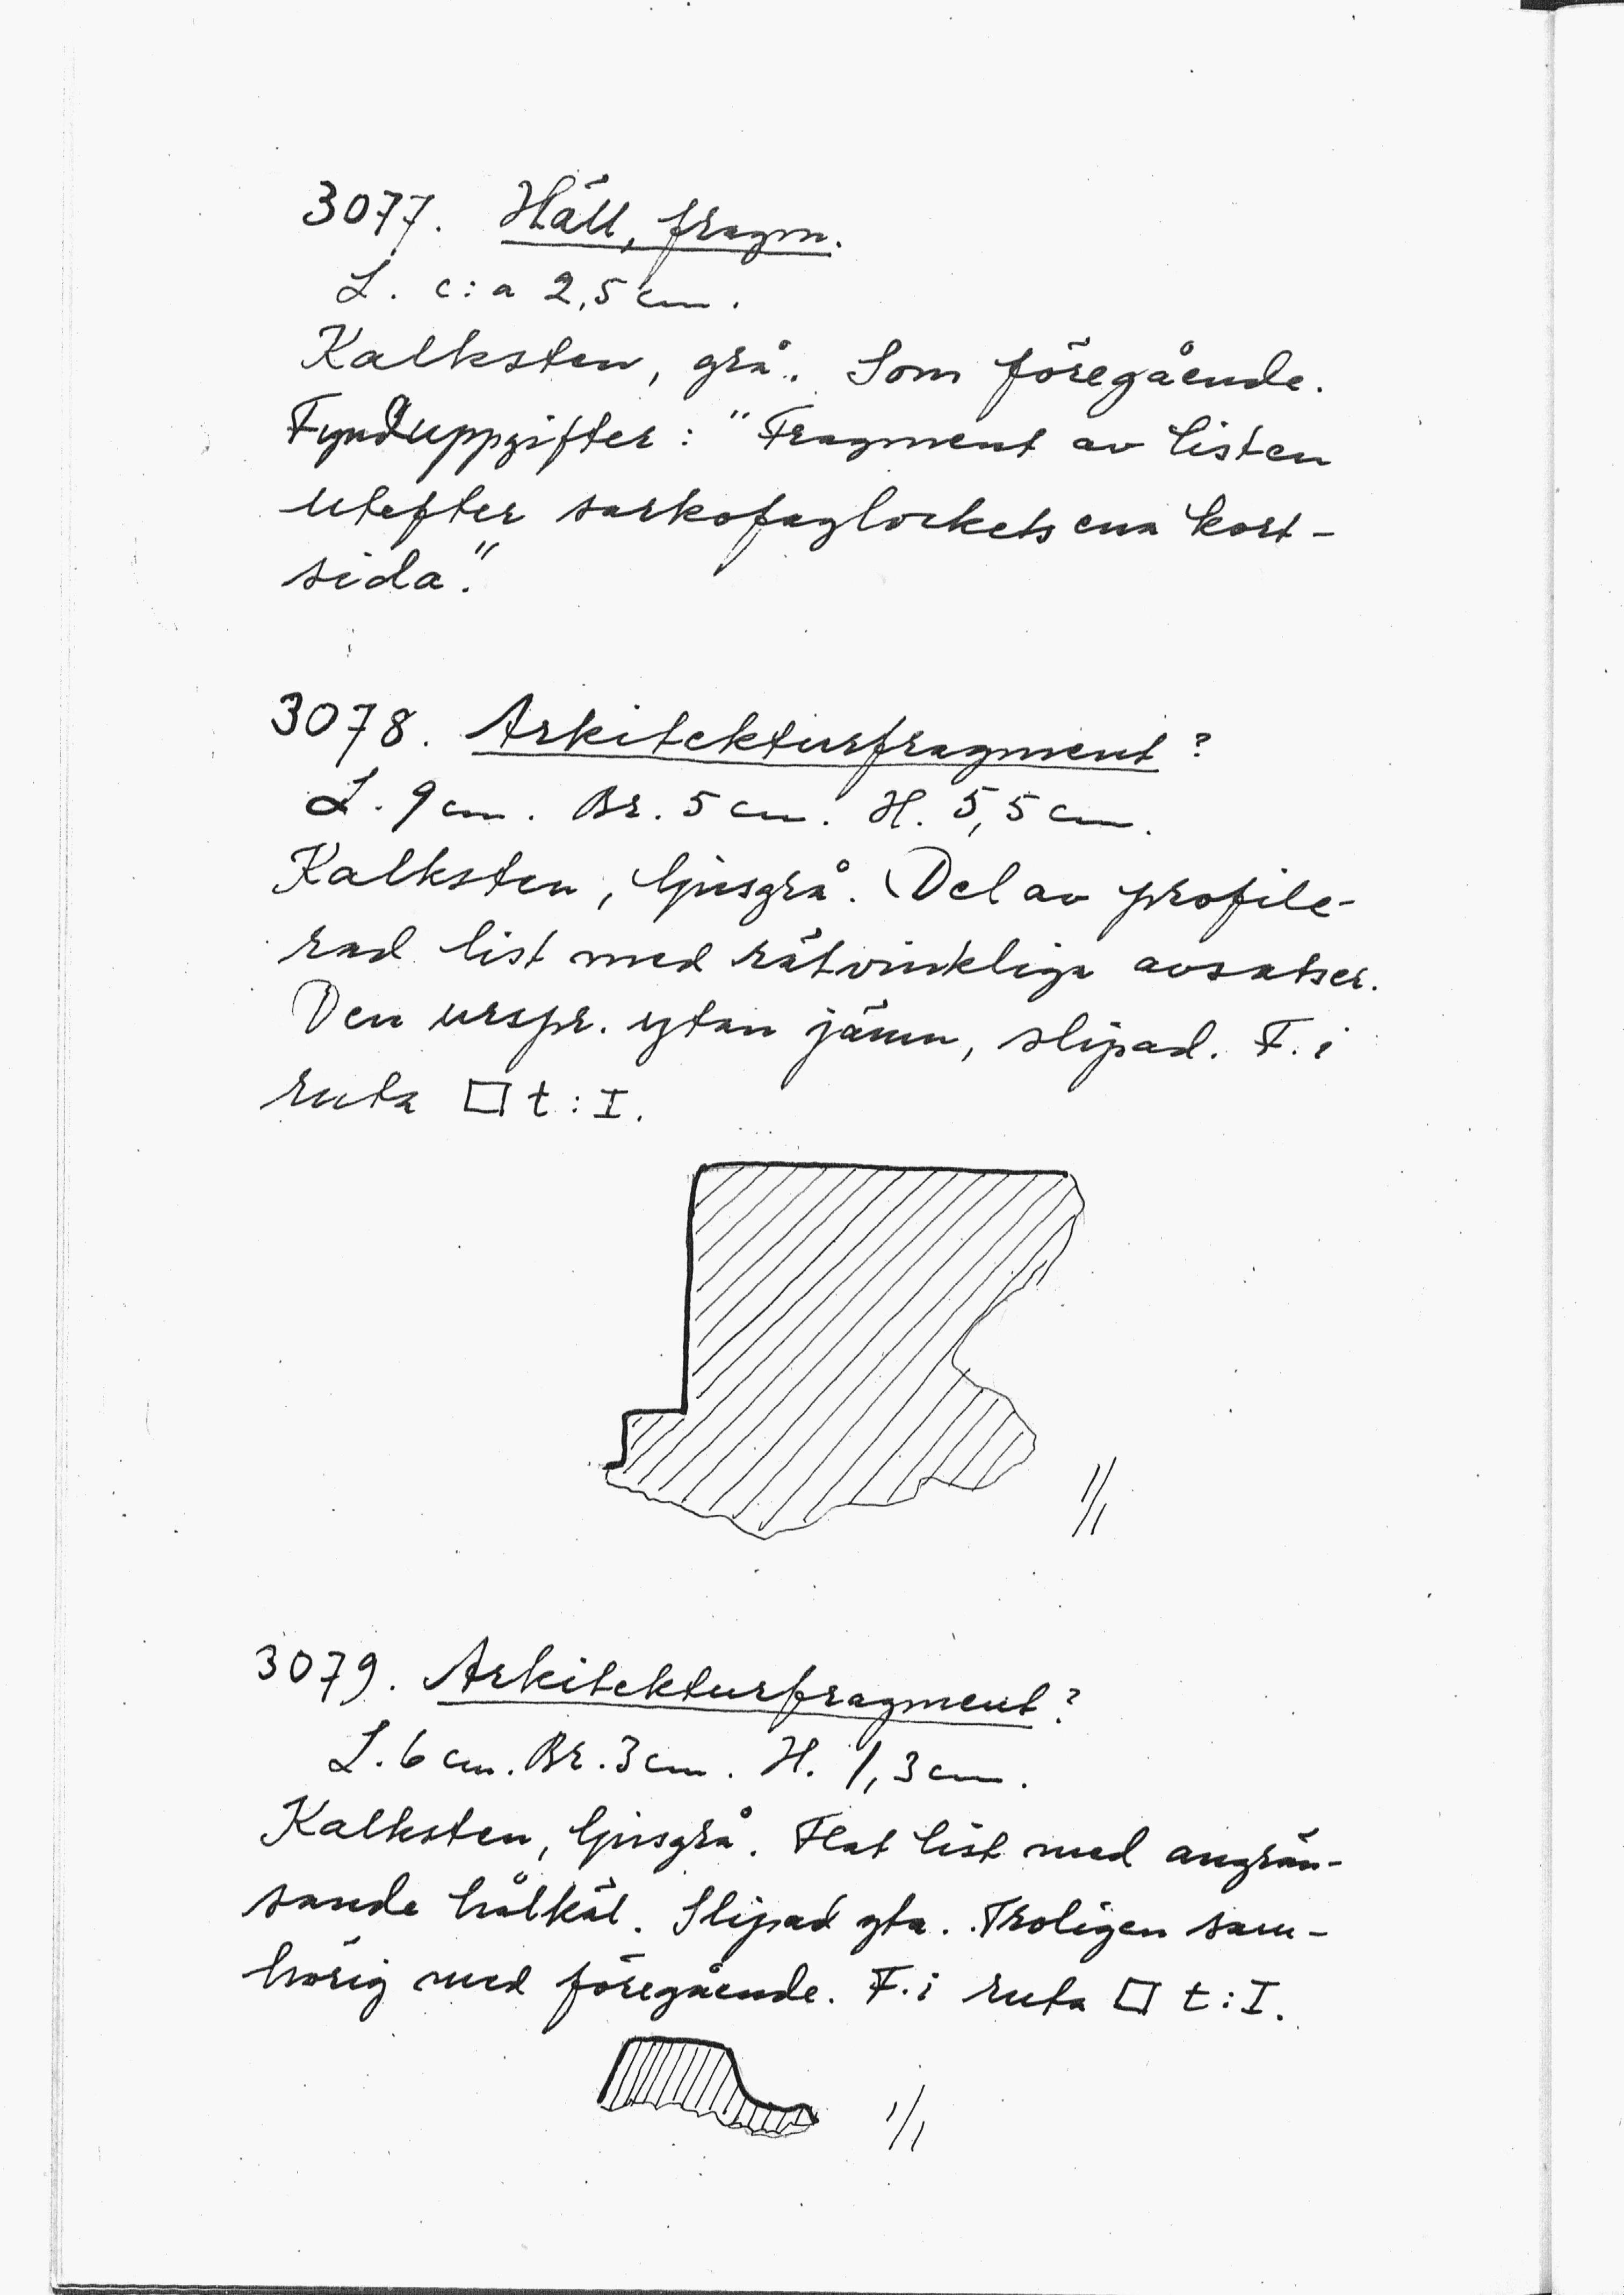 3077. Häll, fragm.
L. c:a 2,5 cm.
Kalksten, grå. Som föregående.
Fynduppgifter: "Fragment av listen
utefter sarkofaglockets ena kort-
sida."
3078. Arkitekturfragment?
L. 9 cm. Br. 5 cm. H. 5,5 cm.
Kalksten, ljusgrå. Del av profile-
rad list med rätvinkliga avsatser.
Den urspr. ytan jämn, slipad. F. i
ruta □ t:I.
1/1
3079. Arkitekturfragment?
L. 6 cm. Br. 3 cm. H. 1,3 cm.
Kalksten, ljusgrå. Flat list med angrän-
sande hålkäl. Slipad yta. Troligen sam-
hörig med föregående. F. i ruta □ t:I.
1/1